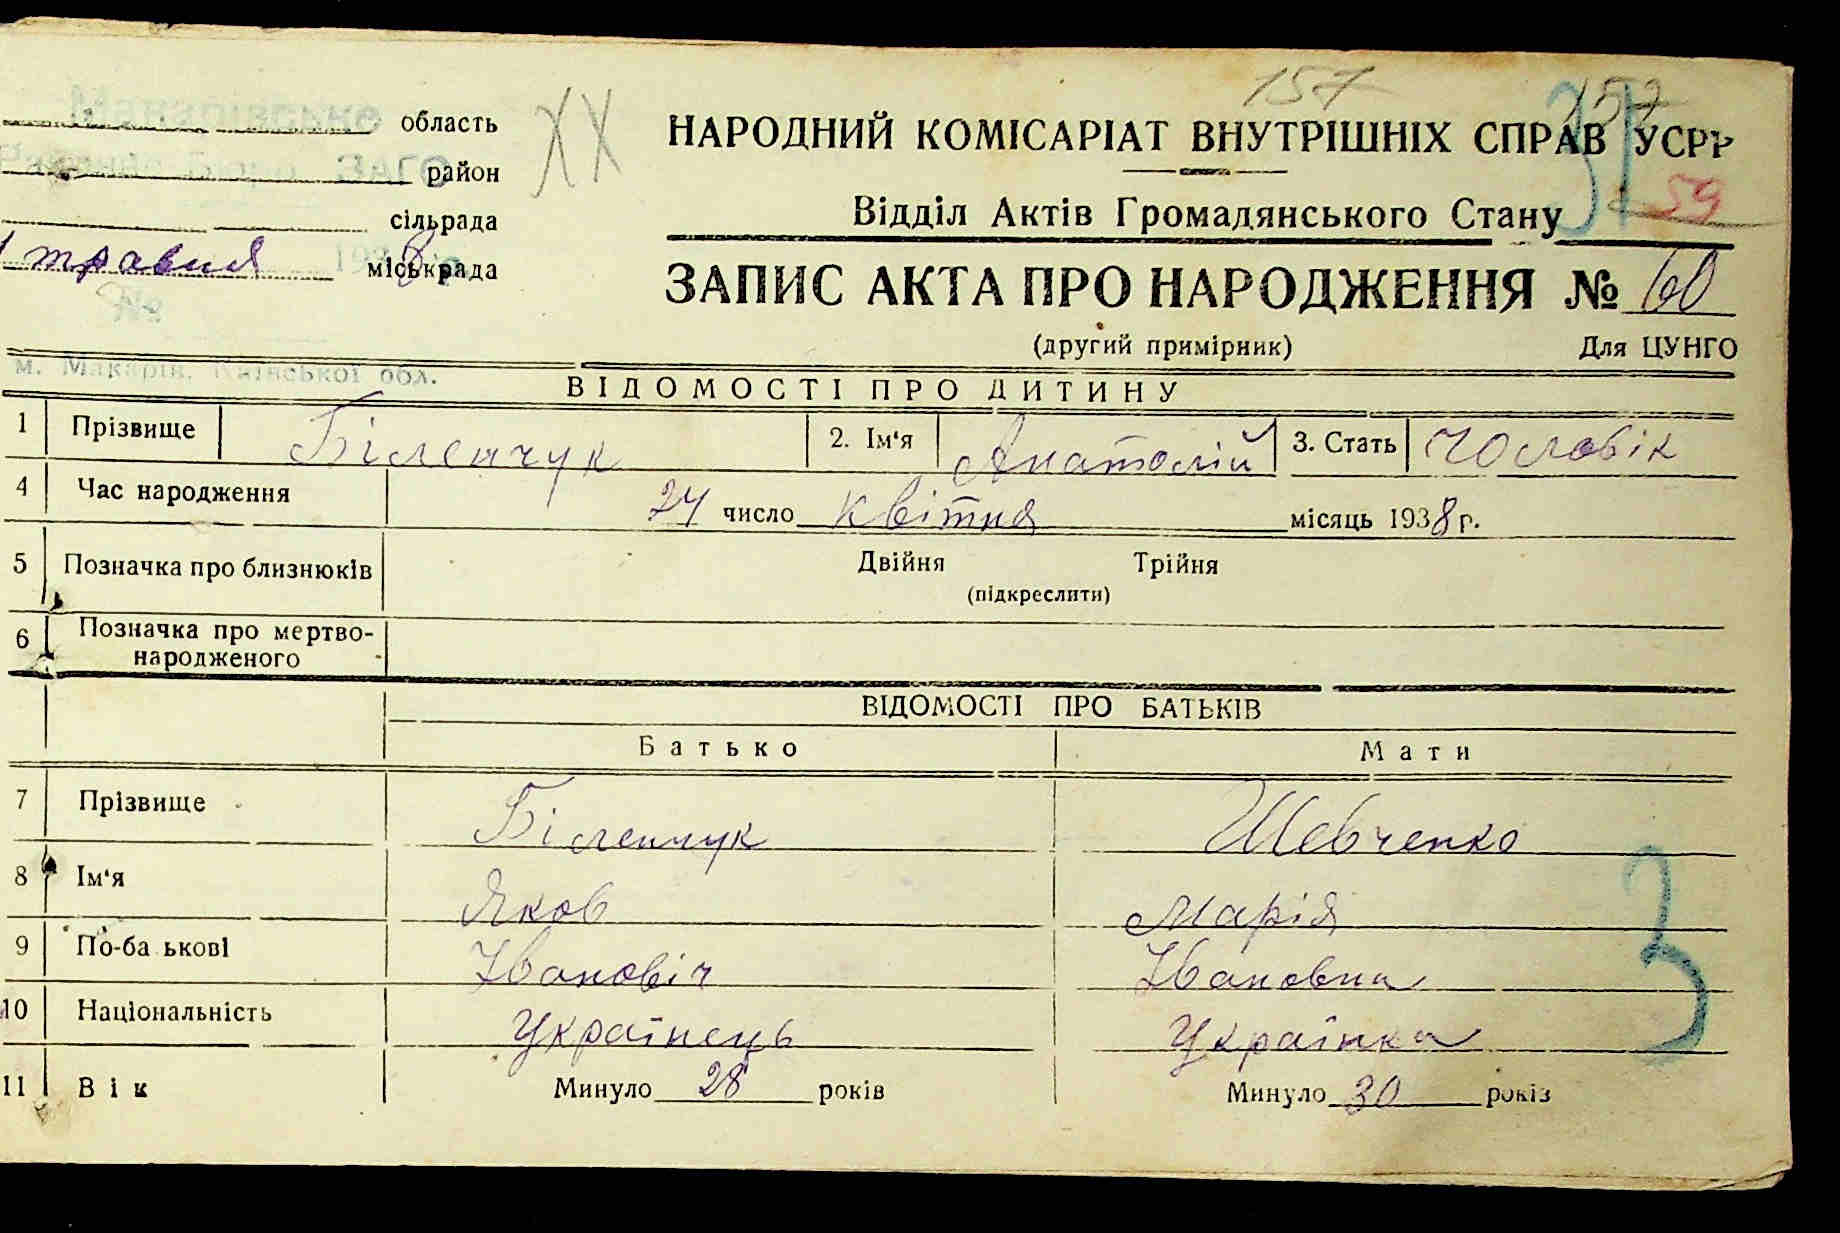 157
157
37
59
Макарівське
область
ХХ
НАРОДНИЙ КОМІСАРІАТ ВНУТРІШНІХ СПРАВ УСРР
Районне Бюро ЗАГС
район
Відділ Актів Громадянського Стану
сільрада
1 травня 1938 р. міськрада
ЗАПИС АКТА ПРО НАРОДЖЕННЯ № 60
№
(другий примірник) Для ЦУНГО
м. Макарів, Київської обл.
ВІДОМОСТІ ПРО ДИТИНУ
1 Прізвище Біленчук 2. Ім'я Анатолій 3. Стать Чоловік
4 Час народження 24 число квітня місяць 1938 р.
5 Позначка про близнюків Двійня Трійня
(підкреслити)
6 Позначка про мертво-
народженого
ВІДОМОСТІ ПРО БАТЬКІВ
Батько Мати
7 Прізвище Біленчук Шевченко
8 Ім'я Яков Марія
9 По-ба ькові Івановіч Івановна
10 Національність Українець Українка
11 Вік Минуло 28 років Минуло 30 років
3